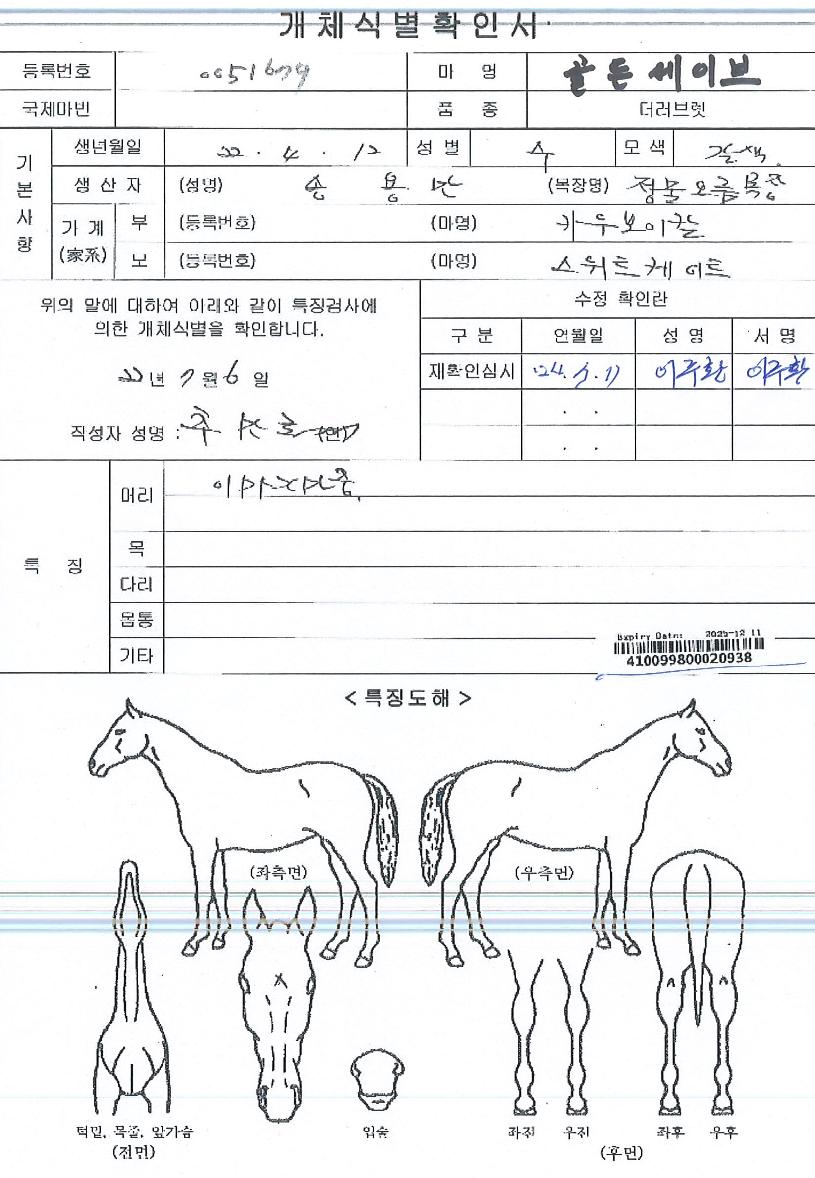 개체식별확인서
등록번호 0051679 마 명 골든세이브
국제마빈 품 종 더러브렛
기본사항
생년월일 22. 4. 12 성별 수 모색 갈색.
생산자 (성명) 송용만 (목장명) 정물오름목장
가계(家系) 부 (등록번호) (마명) 카우보이칼
모 (등록번호) (마명) 스위트케이트
위의 말에 대하여 아래와 같이 특징검사에
의한 개체식별을 확인합니다.
22년 7월 6일
작성자 성명 : (인)
수정 확인란
구분 연월일 성명 서명
재확인심시 '24. 5. 17 이주환 이주환
. .
. .
특 징
머리
목
다리
몸통
기타
Expiry Date: 2025-12-11
410099800020938
<특징도해>
(좌측면) (우측면)
턱밑, 목줄, 앞가슴 입술 좌전 우전 좌후 우후
(전면) (후면)